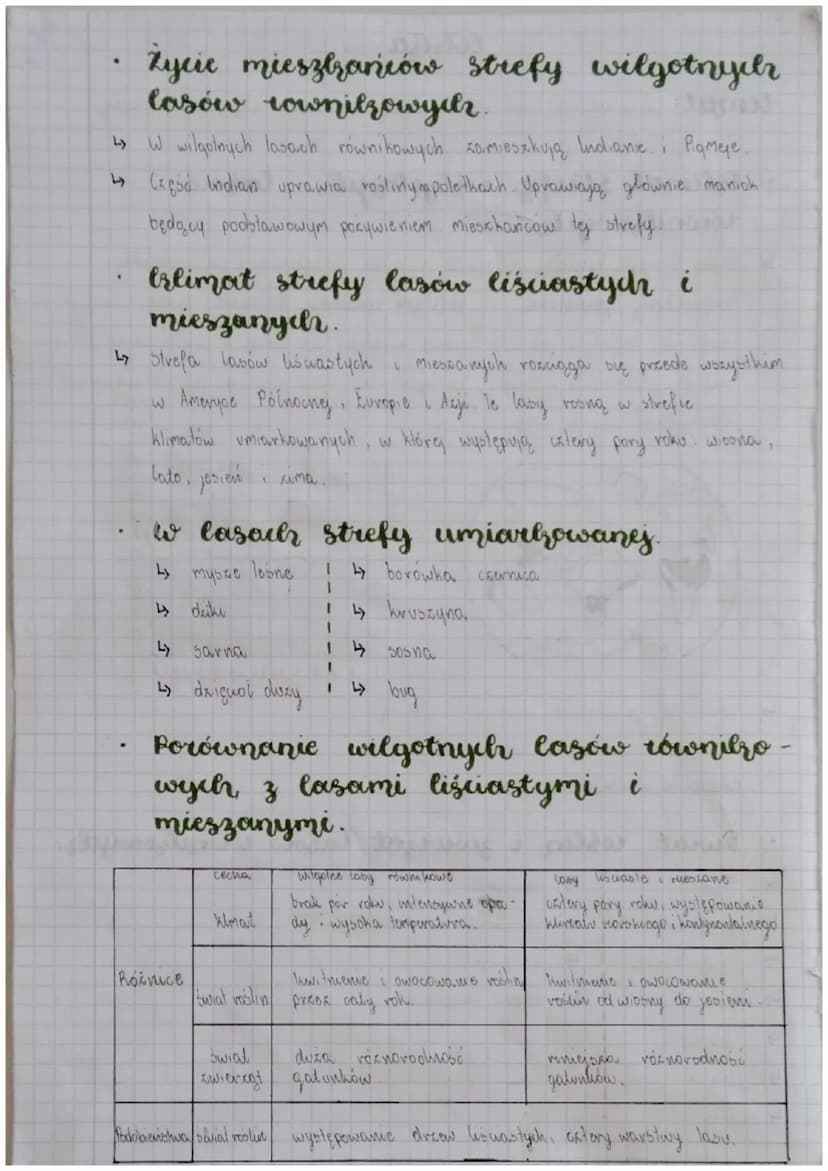 · Życie mieszkańców strefy wilgotnych
lasów równikowych.
↳ W wilgotnych lasach równikowych zamieszkują Indianie i Pigmeje.
↳ Część Indian uprawia rośliny na poletkach. Uprawiają głównie maniok
będący podstawowym pożywieniem mieszkańców tej strefy.
· Klimat strefy lasów liściastych i
mieszanych.
↳ Strefa lasów liściastych i mieszanych rozciąga się przede wszystkim
w Ameryce Północnej, Europie i Azji. Te lasy rosną w strefie
klimatów umiarkowanych, w której występują cztery pory roku: wiosna,
lato, jesień i zima.
· W lasach strefy umiarkowanej.
↳ mysze leśne ↳ borówka czernica
↳ dziki ↳ kruszyna
↳ sarna ↳ sosna
↳ dzięcioł duży ↳ bug
· Porównanie wilgotnych lasów równiko-
wych, z lasami liściastymi i
mieszanymi.
cecha wilgotne lasy równikowe lasy liściaste i mieszane
Różnice
klimat
brak pór roku, intensywne opa-
dy i wysoka temperatura.
cztery pory roku, występowanie
klimatu morskiego i kontynentalnego
świat roślin
kwitnienie i owocowanie roślin
przez cały rok.
kwitnienie i owocowanie
roślin od wiosny do jesieni.
świat
zwierząt
duża różnorodność
gatunków
mniejsza różnorodność
gatunków.
Podobieństwa świat roślin występowanie drzew liściastych, cztery warstwy lasu.